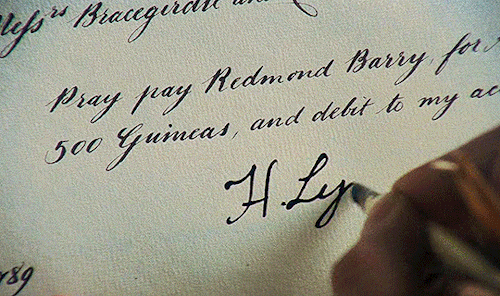 Messrs Bracegirdle and
Pray pay Redmond Barry, for
500 Guineas, and debit to my ac
H. Ly
789